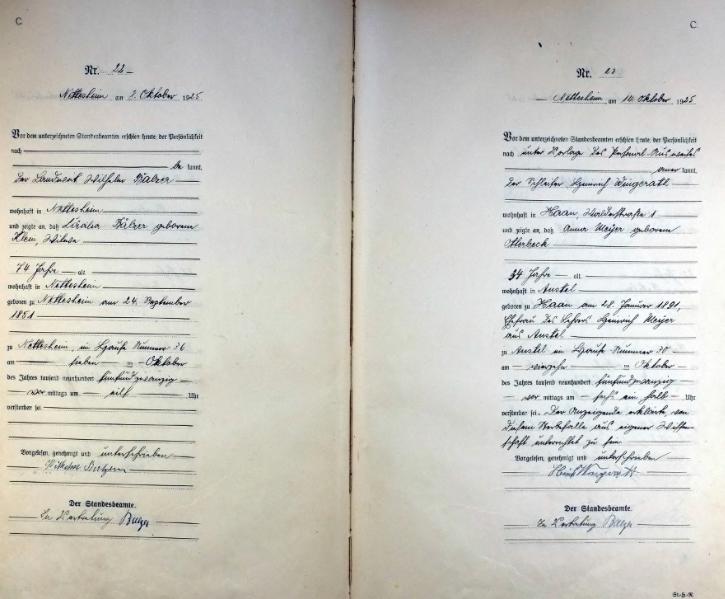 C
Nr. 22
Nettesheim am Oktober 1925
Vor dem unterzeichneten Standesbeamten erschien heute, der Persönlichkeit
nach
be kannt,
der Landwirt Wilhelm
wohnhaft in Nettesheim
und zeigte an, daß geborene
Klein, Witwe
74 Jahre alt
wohnhaft in Nettesheim
geboren zu Nettesheim am 24. September
1851
zu Nettesheim, in Hause Nummer 76
am sieben ten Oktober
des Jahres tausend neunhundert fünfundzwanzig
vor mittags um elf Uhr
verstorben sei.
Vorgelesen, genehmigt und unterschrieben
Wilhelm
Der Standesbeamte.
In Vertretung
C
Nr. 23
Nettesheim am Oktober 1925
Vor dem unterzeichneten Standesbeamten erschien heute, der Persönlichkeit
nach unter Vorlage des Personal-Ausweises
aner kannt,
der Schleifer Heinrich
wohnhaft in Haan, 1
und zeigte an, daß Anna Meyer geborene
Otterbeck
34 Jahre alt
wohnhaft in Anstel
geboren zu Haan am 28. Januar 1891,
Ehefrau des Heinrich Meyer
aus Anstel
zu Anstel in Hause Nummer 70
am Oktober
des Jahres tausend neunhundert fünfundzwanzig
vor mittags um sechs ein halb Uhr
verstorben sei. Der Anzeigende erklärte, von
diesem Sterbefalle aus eigener Wissen-
schaft unterrichtet zu sein
Vorgelesen, genehmigt und unterschrieben
Der Standesbeamte.
In Vertretung